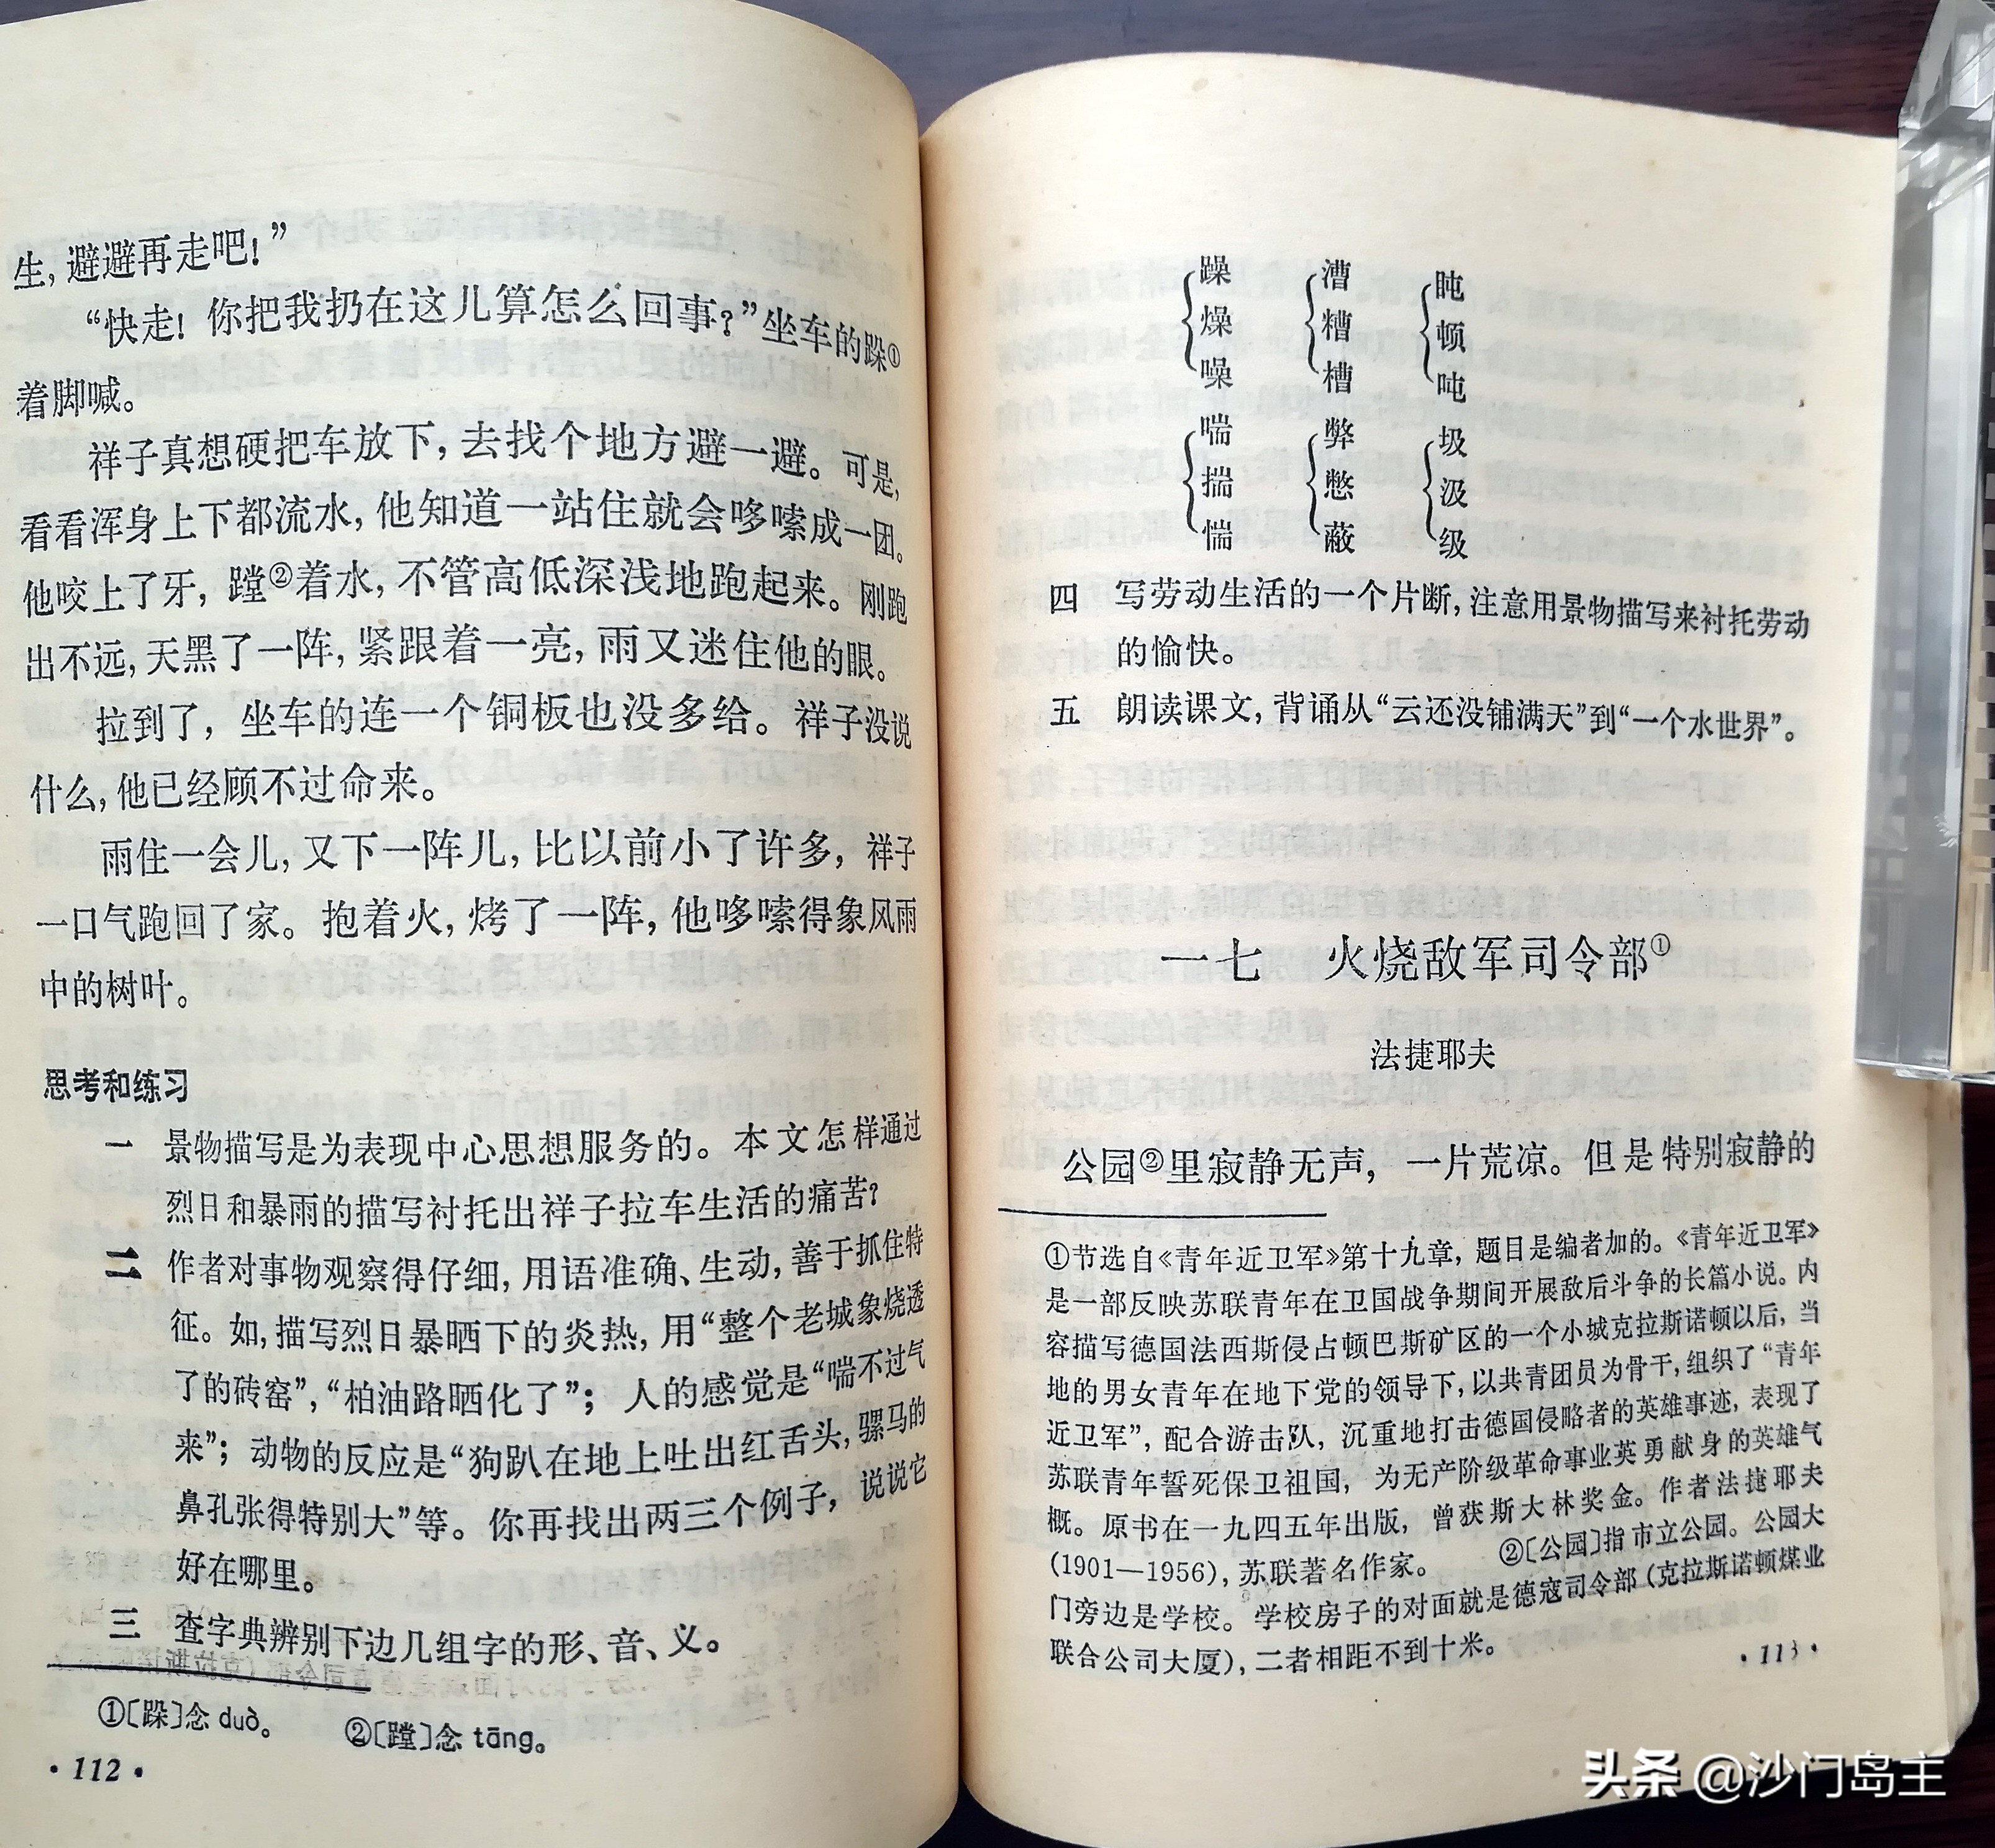 生，避避再走吧！”
“快走！你把我扔在这儿算怎么回事？”坐车的跺①
着脚喊。
祥子真想硬把车放下，去找个地方避一避。可是，
看看浑身上下都流水，他知道一站住就会哆嗦成一团。
他咬上了牙，蹚②着水，不管高低深浅地跑起来。刚跑
出不远，天黑了一阵，紧跟着一亮，雨又迷住他的眼。
拉到了，坐车的连一个铜板也没多给。祥子没说
什么，他已经顾不过命来。
雨住一会儿，又下一阵儿，比以前小了许多，祥子
一口气跑回了家。抱着火，烤了一阵，他哆嗦得象风雨
中的树叶。
思考和练习
一 景物描写是为表现中心思想服务的。本文怎样通过
烈日和暴雨的描写衬托出祥子拉车生活的痛苦？
二 作者对事物观察得仔细，用语准确、生动，善于抓住特
征。如，描写烈日暴晒下的炎热，用“整个老城象烧透
了的砖窑”，“柏油路晒化了”；人的感觉是“喘不过气
来”；动物的反应是“狗趴在地上吐出红舌头，骡马的
鼻孔张得特别大”等。你再找出两三个例子，说说它
好在哪里。
三 查字典辨别下边几组字的形、音、义。
①〔跺〕念 duò。 ②〔蹚〕念 tāng。
· 112 ·
躁 漕 盹
燥 糟 顿
噪 槽 吨
喘 弊 圾
揣 憋 汲
惴 蔽 级
四 写劳动生活的一个片断，注意用景物描写来衬托劳动
的愉快。
五 朗读课文，背诵从“云还没铺满天”到“一个水世界”。
一七 火烧敌军司令部①
法捷耶夫
公园②里寂静无声，一片荒凉。但是特别寂静的
①节选自《青年近卫军》第十九章，题目是编者加的。《青年近卫军》
是一部反映苏联青年在卫国战争期间开展敌后斗争的长篇小说。内
容描写德国法西斯侵占顿巴斯矿区的一个小城克拉斯诺顿以后，当
地的男女青年在地下党的领导下，以共青团员为骨干，组织了“青年
近卫军”，配合游击队，沉重地打击德国侵略者的英雄事迹，表现了
苏联青年誓死保卫祖国，为无产阶级革命事业英勇献身的英雄气
概。原书在一九四五年出版，曾获斯大林奖金。作者法捷耶夫
(1901—1956)，苏联著名作家。 ②〔公园〕指市立公园。公园大
门旁边是学校。学校房子的对面就是德寇司令部（克拉斯诺顿煤业
联合公司大厦），二者相距不到十米。
· 113 ·
头条 @沙门岛主